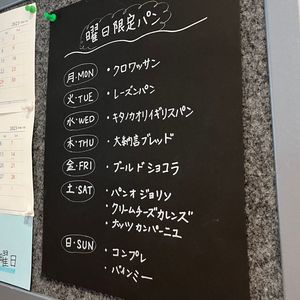 曜日限定パン
月・MON ・クロワッサン
火・TUE ・レーズンパン
水・WED ・キタノカオリイギリスパン
木・THU ・大納言ブレッド
金・FRI ・ブールドショコラ
土・SAT ・パンオジョリソ
・クリームチーズカレンズ
・ナッツカンパーニュ
日・SUN ・コンプレ
・バインミー
2023
2023
曜日